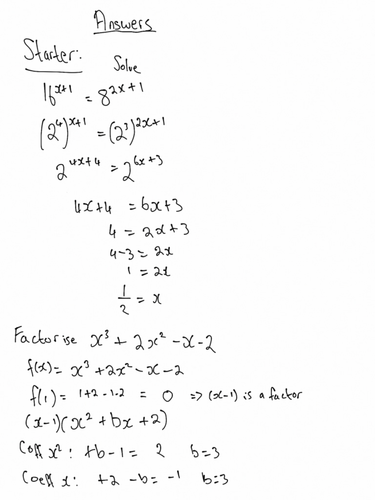 Answers
Starter:
Solve
16^{x+1} = 8^{2x+1}
(2^4)^{x+1} = (2^3)^{2x+1}
2^{4x+4} = 2^{6x+3}
4x+4 = 6x+3
4 = 2x+3
4-3 = 2x
1 = 2x
1/2 = x
Factorise x^3 + 2x^2 - x - 2
f(x) = x^3 + 2x^2 - x - 2
f(1) = 1+2-1-2 = 0 => (x-1) is a factor
(x-1)(x^2 + bx + 2)
Coeff x^2: +b-1 = 2 b=3
Coeff x: +2 -b = -1 b=3